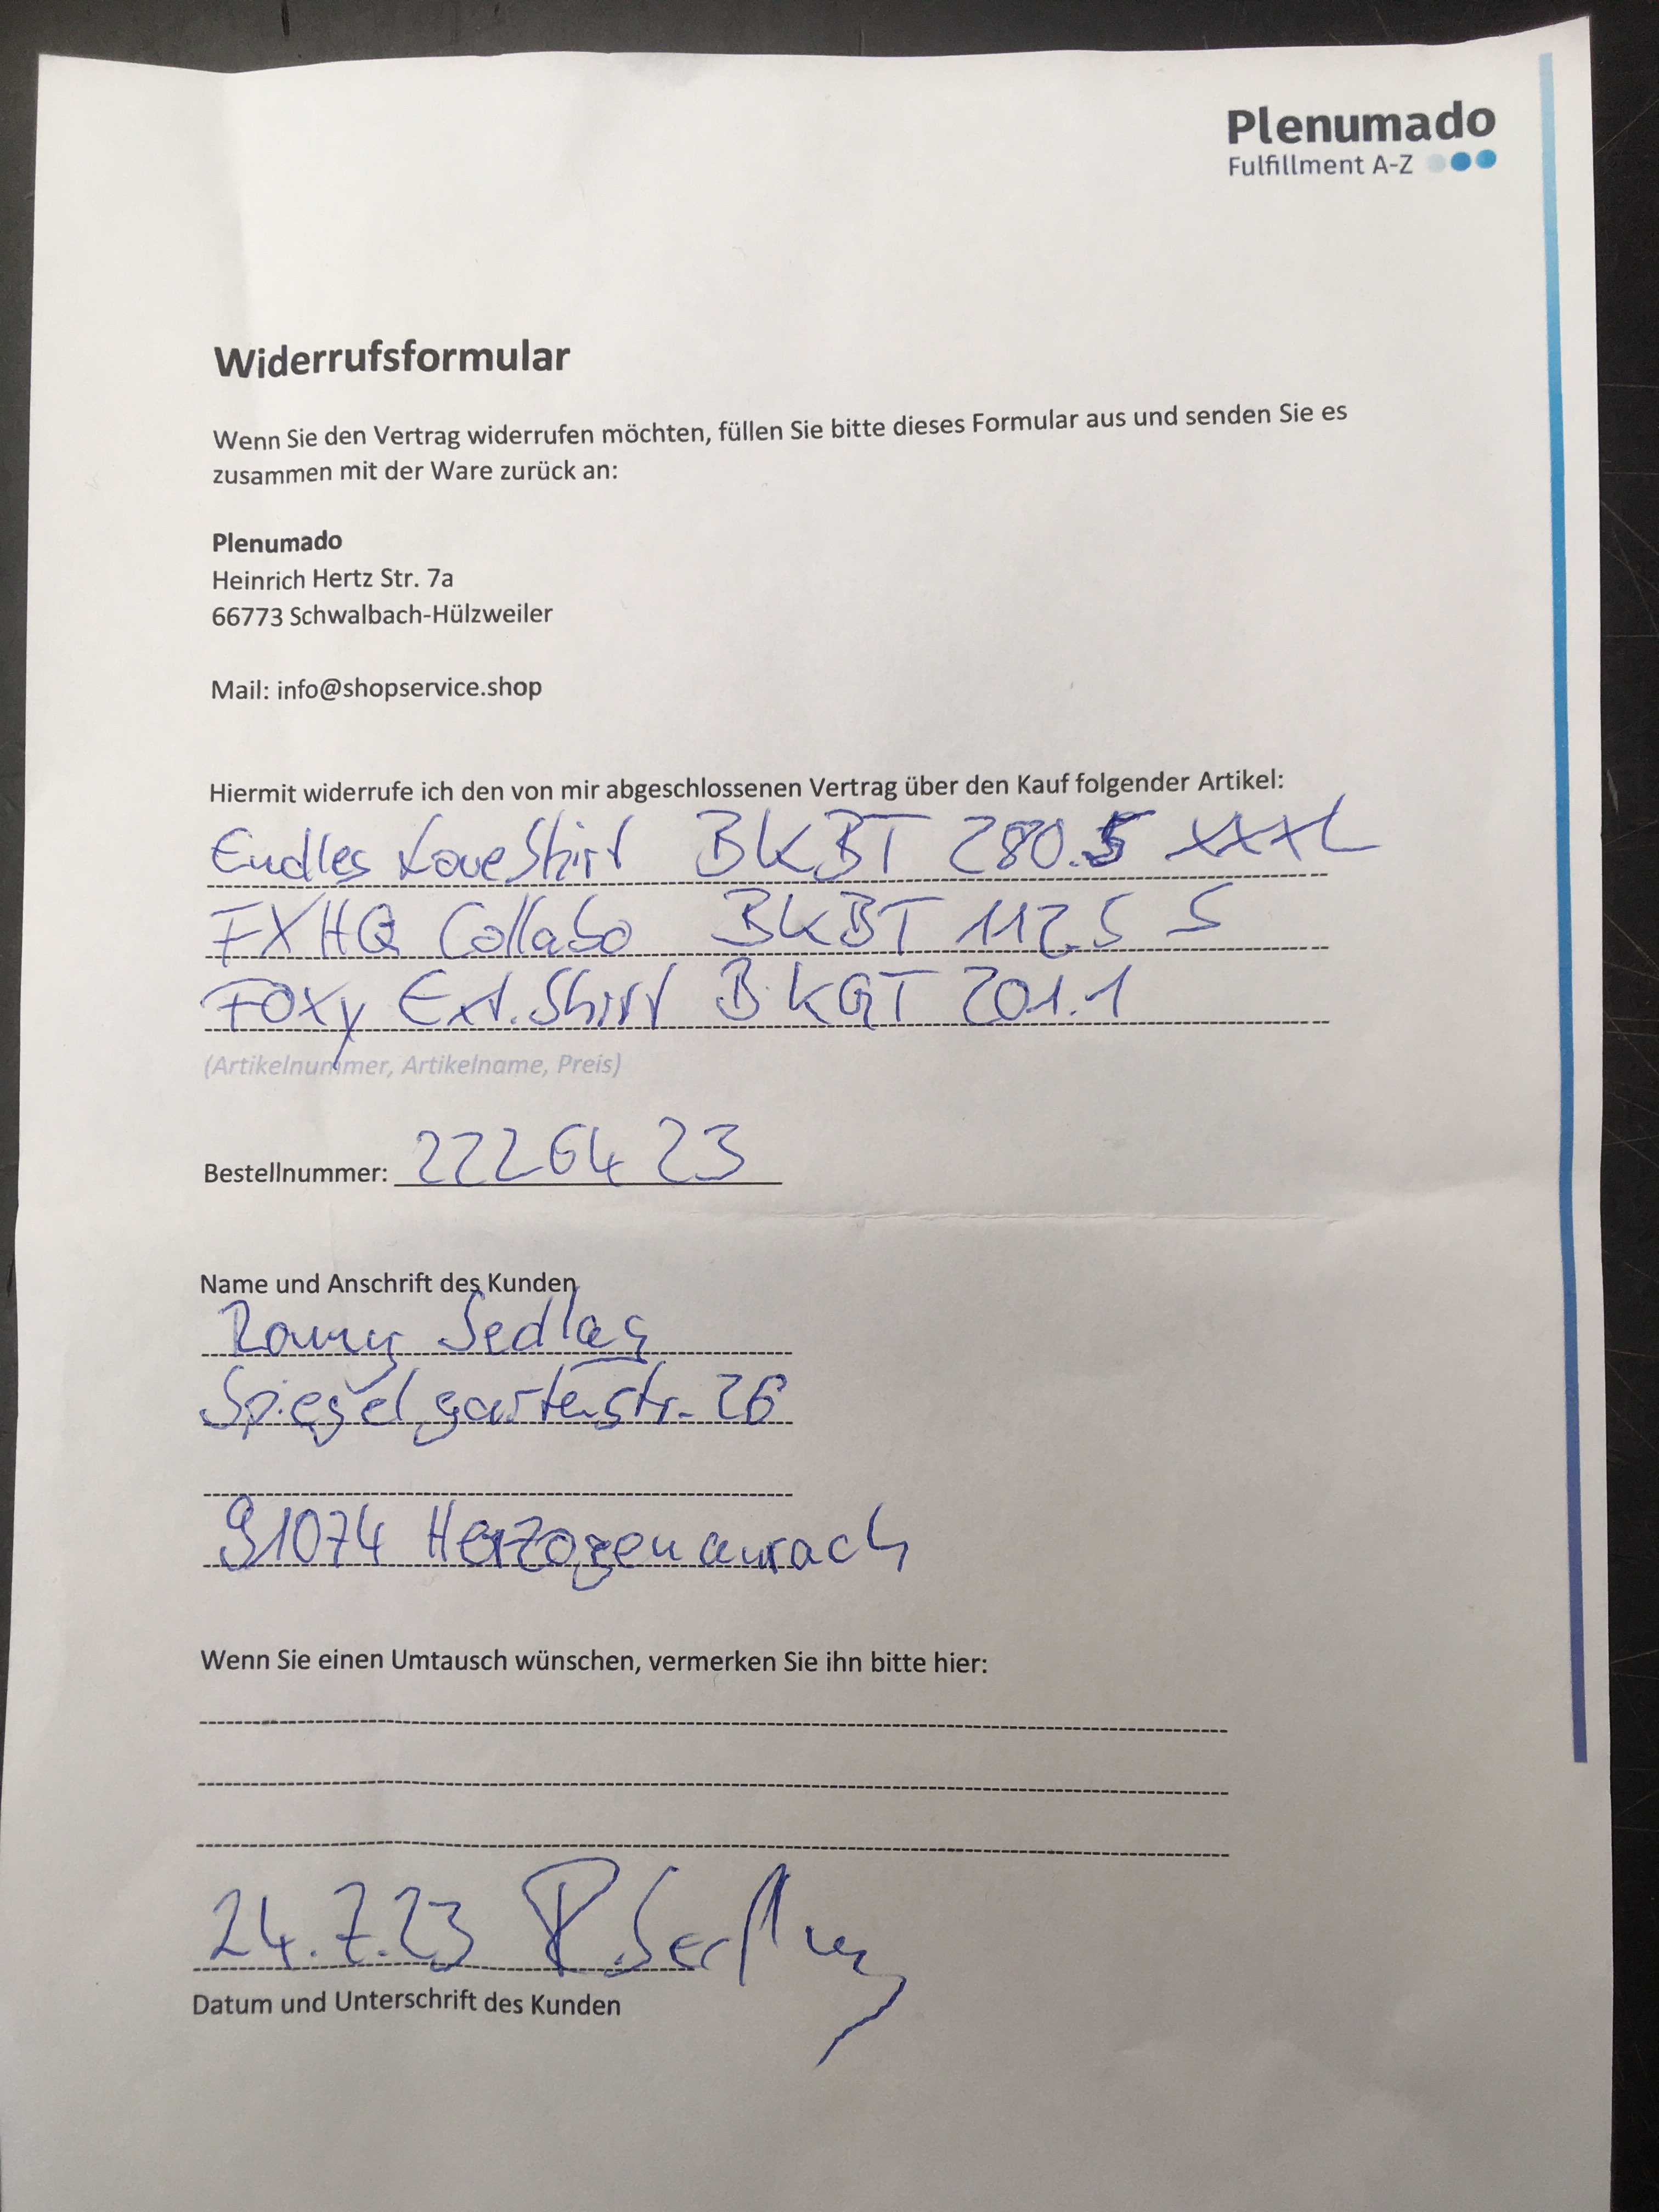 Plenumado
Fulfillment A-Z
Widerrufsformular
Wenn Sie den Vertrag widerrufen möchten, füllen Sie bitte dieses Formular aus und senden Sie es
zusammen mit der Ware zurück an:
Plenumado
Heinrich Hertz Str. 7a
66773 Schwalbach-Hülzweiler
Mail: info@shopservice.shop
Hiermit widerrufe ich den von mir abgeschlossenen Vertrag über den Kauf folgender Artikel:
Endles Love Shirt BKBT 280.5 XXXL
FXHQ Collabo BKBT 112.5 S
Foxy Ext. Shirt BKGT 201.1
(Artikelnummer, Artikelname, Preis)
Bestellnummer: 22264 23
Name und Anschrift des Kunden
Ronny Sedlag
Spiegelgartenstr. 26
91074 Herzogenaurach
Wenn Sie einen Umtausch wünschen, vermerken Sie ihn bitte hier:
24.7.23 R. Sedlag
Datum und Unterschrift des Kunden